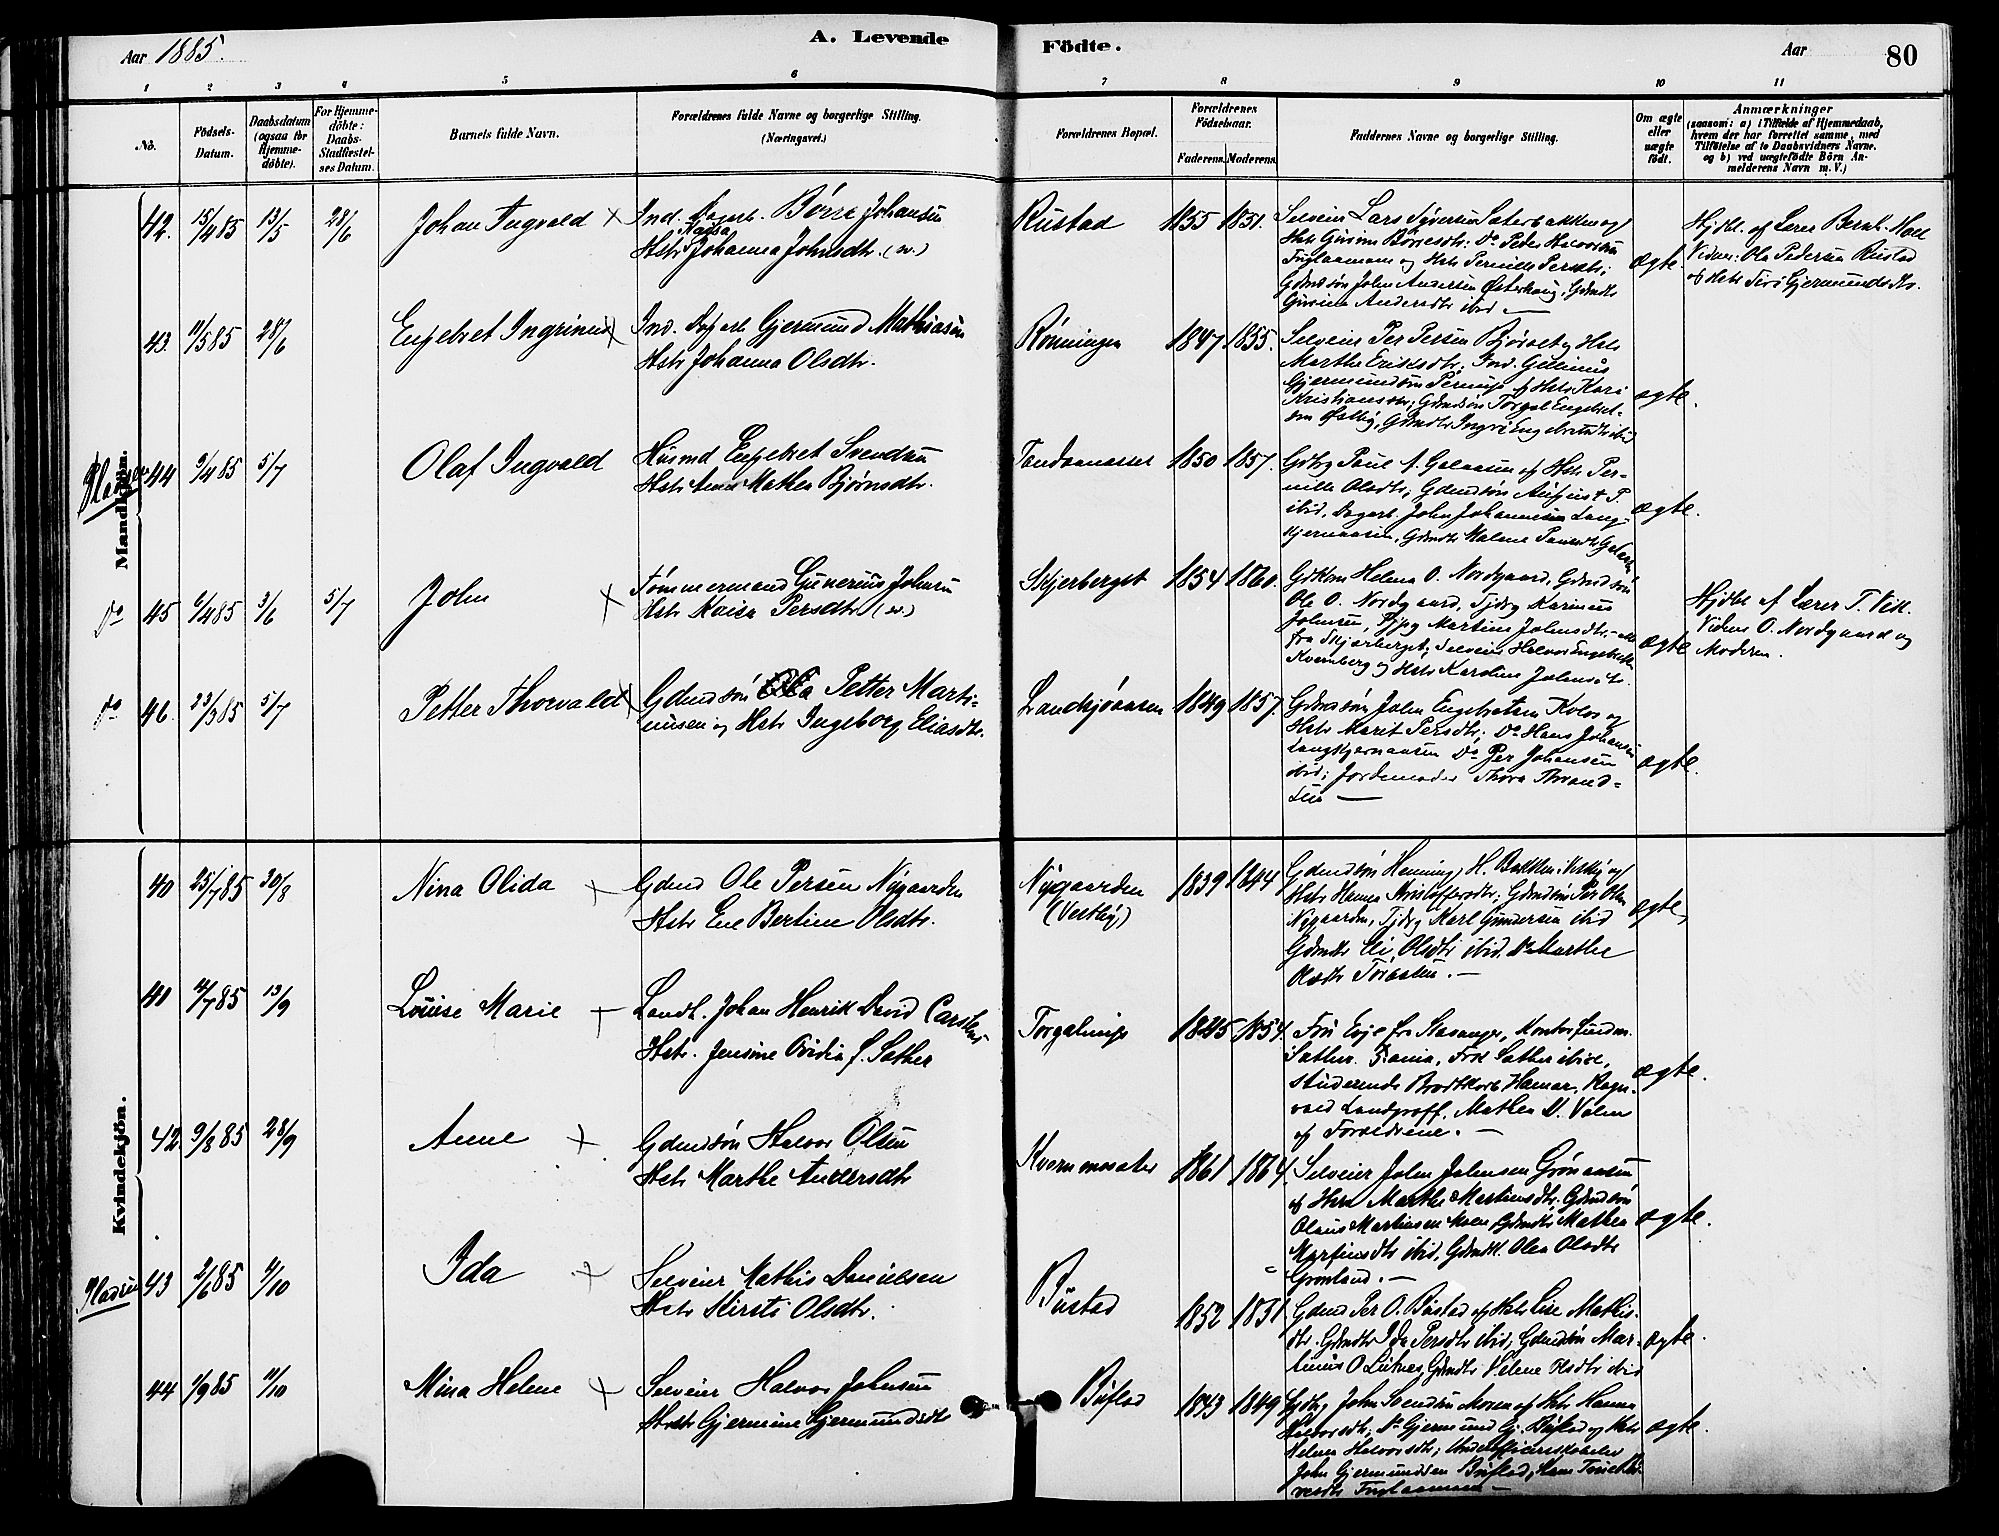 Aar 1885.
A. Levende
Födte.
Aar
80
1 2 3 4 5 6 7 8 9 10 11
No.
Födsels-Datum.
Daabsdatum (ogsaa for Hjemme-döbte).
For Hjemme-döbte: Daabs-Stadfæstel-ses Datum.
Barnets fulde Navn.
Forældrenes fulde Navne og borgerlige Stilling.
(Næringsvei.)
Forældrenes Bopæl.
Forældrenes Födselsaar.
Faderens. Moderens.
Faddernes Navne og borgerlige Stilling.
Om ægte eller uægte födt.
Anmærkninger
(saasom: a) i Tilfælde af Hjemmedaab, hvem der har forrettet samme, med Tilföielse af to Daabsvidners Navne. og b) ved uægtefödte Börn An-melderens Navn m. V.)
Mandkjön.
42. 15/4 85 13/5 28/6 Johan Ingvald × Ind. Dagarb. Börre Johansen
Kaisa
Hstr Johanna Johnsdtr. (w.)
Rustad 1855 1851.
Selveier Lars Syversen Sæterbakken og
Hstr Gurine Börresdtr; Do Peder Halvorsen
Fuglaamoen og Hstr Pernille Persdtr;
Gdmdsön John Andersen Österhaug, Gdmdtr
Gurine Andersdtr ibid —
ægte.
Hjdbt. af Lærer Bernh. Hoel
Vidner: Ole Pedersen Rustad
og Hstr Siri Gjermundsdtr.
43. 11/5 85 28/6 Engebret Ingvinus × Ind. Dagarb Gjermund Mathiasen
Hstr Johanna Olsdtr.
Rönningen 1847 1855.
Selveier Per Persen Björset og Hstr
Marthe Eriksdtr; Ind. Gulinius
Gjermundsen Perninge og Hstr Kari
Kristiansdtr; Gdmdsön Torgal Engebret-
sen Östby, Gdmdtr Ingri Engebretsdtr ibid
ægte.
44 5/7 Olaf Ingvald
Husmd Engebret Svendsen
Hstr Anne Mathea Björnsdtr.
1850 1857.
Gdbrg Paul A. Galaasen og Hstr Per-
nille Olsdtr; Gdmdsön August P.
ibid, Dagarb. John Johannesen Lang-
kjernaasen, Gdmdtr Malene Paulsdtr Galaasen
ægte.
Do 45 6/4 85 3/6 5/7 John ×
Tömmermand Gunerius Johnsen
Hstr Kaisa Persdtr (w.)
Skjerberget 1854 1860.
Gdkone Helena O. Nordgaard, Gdmdsön
Ole O. Nordgaard, Tjdrg Karinus
Johnsen, Tjpg Martine Johnsdtr —
fra Skjærberget; Selveier Halvor Engebretsen
Kvernberg og Hstr Karoline Johnsdtr.
ægte
Hjdbt af Lærer T. Vik.
Vidner O. Nordgaard og
Moderen.
Do 46. 23/3 85 5/7 Petter Thorvald ×
Gdmdsön Petter Marti-
nussen og Hstr Ingeborg Eliasdtr.
Landsjöaasen 1849 1857.
Gdmdsön John Engebretsen Kolos og
Hstr Marit Persdtr; Do Hans Johansen
Langkjernaasen Do Per Johansen
ibid; Jordemoder Thora Thrond-
sen —
ægte.
Kvindekjön.
40 25/7 85 30/8 Nina Olida ×
Gdmd Ole Persen Nygaarden
Hstr Ene Bertine Olsdtr.
Nygaarden
(Vestby)
1839 1844
Gdmdsön Henning H. Bakken, Vestby og
Hstr Hanna Kristoffersdtr, Gdmdsön Per Olsen
Nygaarden, Tjdrg Karl Gundersen ibid
Gdmdtr Eli Olsdtr ibid. Do Marthe
Olsdtr Toraasen. —
ægte,
13/9 Louise Marie +
Landh. Johan Henrik David Carstens
Hstr. Jensine Ovidia f. Sæther
1854.
Fru Evje fra Stavanger,
Sæther
studerende Brodtkorb Hamar, Ragn-
vald Landgraff, Mathea D. Velen
og Forældrene. —
ægte.
42. 9/8 85 28/9 Anne ×
Gdmdsön Halvor Olsen
Hstr Marthe Andersdtr
Kvernmosæter 1861 1864.
Selveier John Johnsen Grönaasen
og Hstr Marthe Martinusdtr; Gdmdsön
Olaus Martinsen Moen, Gdmdtr Mathea
Martinsdtr ibid, Gdmdtr. Olea Olsdtr
Grönland. —
ægte.
43 2/6 85 4/10 Ida ×
Selveier Mathis Danielsen
Hstr Kirsti Olsdtr.
Büstad 1852 1851.
Gdmd Per O. Büstad og Hstr Lise Mathis-
dtr. Gdmdtr Ida Persdtr ibid, Gdmdsön Mar-
tinus O Lutnes, Gdmdtr Helene Olsdtr ibid
ægte.
44 1/9 85 11/10 Mina Helene ×
Selveier Halvor Johnsen
Hstr Gjermine Gjermundsdtr
Büflod 1843 1849
Gdbrg John Svendsen Moren og Hstr Hanna
Halvorsdtr; Do Gjermund Gj. Büflod og Hstr
Helene Halvorsdtr; Underofficerselev
John Gjermundsen Büflod,
Fuglaamoen —
ægte.